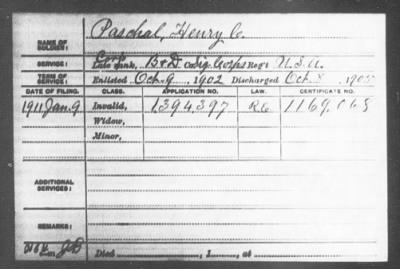 NAME OF SOLDIER: Paschal, Henry C.
SERVICE: Late rank, B&D Co. Sig. Corps Reg't U.S.A.
TERM OF SERVICE: Enlisted Oct. 9, 1902 Discharged Oct. 8, 1905
DATE OF FILING. CLASS. APPLICATION NO. LAW. CERTIFICATE NO.
1911 Jan. 9 Invalid, 1,394,397 1169,
Widow,
Minor,
ADDITIONAL SERVICES:
REMARKS:
Died , 1 , at